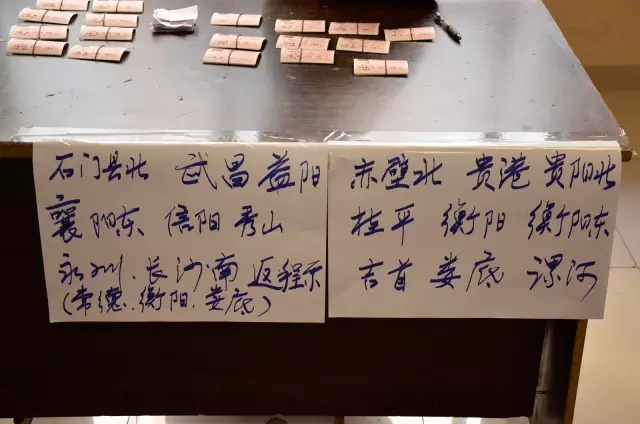 石门县北 武昌 益阳
襄阳东 信阳 秀山
永州.长沙南 返程票
(常德.衡阳.娄底)
赤壁北 贵港 贵阳北
桂平 衡阳 衡阳东
吉首 娄底 漯河